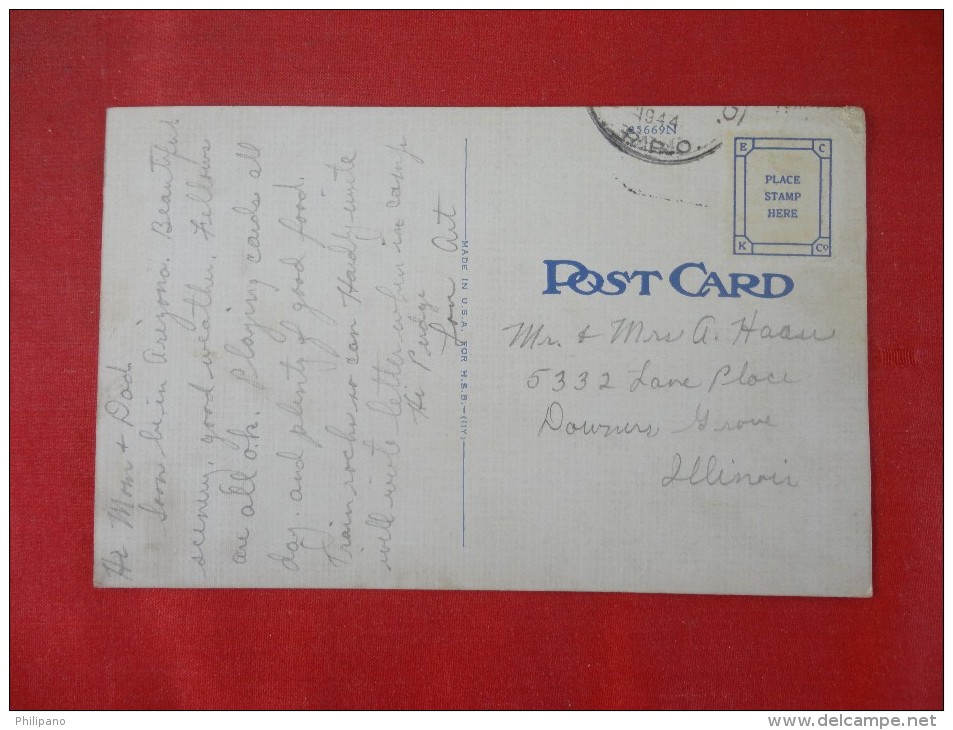 Hi Mom & Dad.
Soon be in Arizona. Beautiful
scenery, good weather, fellows
are all o.k. Playing cards all
day. and plenty of good food.
Train rocks so can Hardly write
will write letter when in camp
Hi Pudge
Son Art
MADE IN U.S.A. FOR H.S.B.—(IIY)
1944
R.P.O.
5669N
PLACE
STAMP
HERE
E C
K Co
POST CARD
Mr. & Mrs A. Haase
5332 Lane Place
Downers Grove
Illinois
Philipano
www.delcampe.net